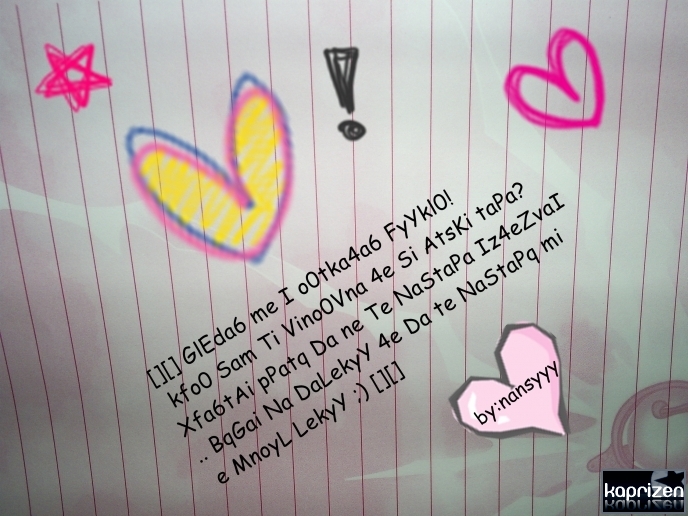 !
[][] GlEda6 me I oOtka4a6 FyYklO!
kfoO Sam Ti VinoOVna 4e Si AtsKi taPa?
Xfa6tAi pPatq Da ne Te NaStaPa Iz4eZvaI
.. BqGai Na DaLekyY 4e Da te NaStaPq mi
e MnoyL LekyY :) [][]
by:nansyyy
kaprizen